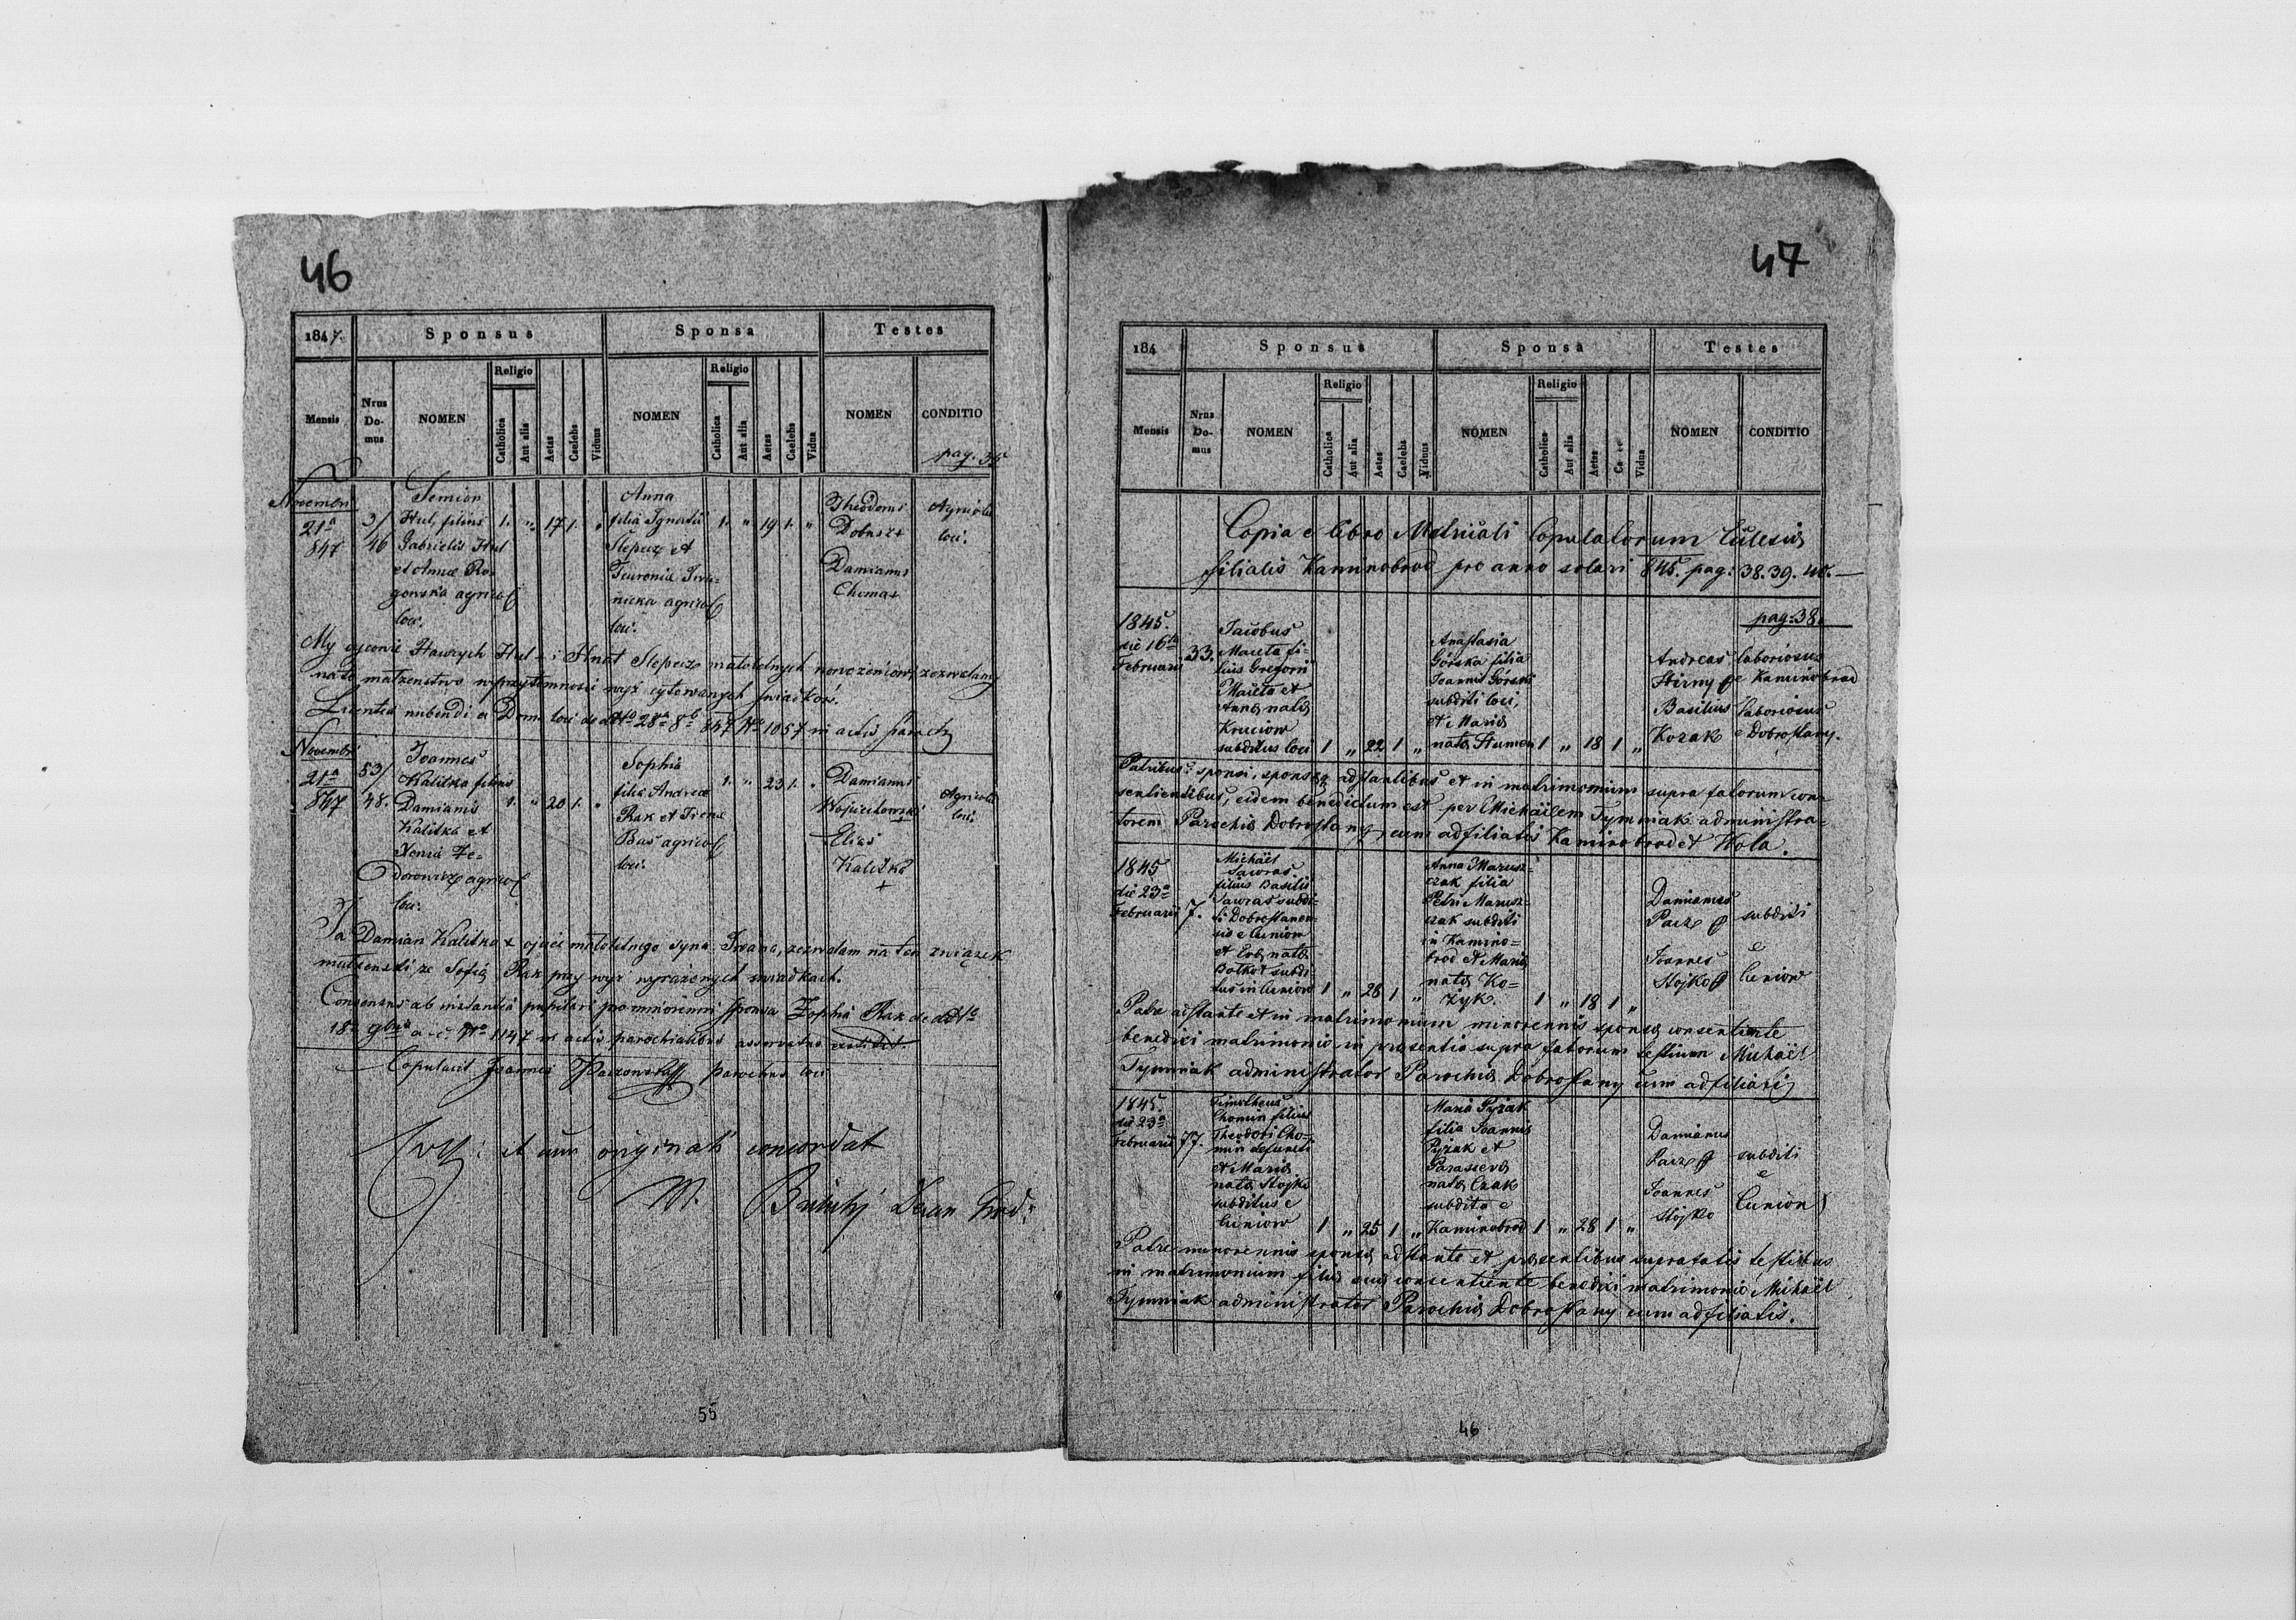 46
1847.
Sponsus
Sponsa
Testes
Mensis
Nrus Do- mus
NOMEN
Religio
Catholica
Aut alia
Aetas
Caelebs
Viduus
NOMEN
Religio
Catholica
Aut alia
Aetas
Caelebs
Vidua
NOMEN
CONDITIO
pag. 35
21a
847
3/
46
Semion
Hul, filius
Gabrielis Hul
et Annæ Ro-
gowska agricol
loci.
1. " 17 1. "
Anna
filia Ignatii
Slepecz et
agricol
loci.
1. " 19 1. "
Theodorus
Dobusz +
Damianus
Choma +
Agricola
loci.
My ojcowie Hawrych Hul + i Hnat Slepecz małoletnych nowożeńców zezwalamy
na to małżeństwo w przytomności wyż cytowanych świadków.
Licentia nubendi a Dom. loci de dtto 28a 8b 847 No 1057 in actis paroch
Novembri
21a
847
53/
48.
Joannes
Kalitka filius
Damianis
Kalitka et
Xenia Fe-
dorowicz agricol
loci.
1. " 20 1. "
Sophia
filia Andreæ
Rak et Irenæ
Bas agricol
loci.
1. " 23 1. "
Damianus
Wojciechowski
+
Elias
Kalitka
+
Agricola
loci.
Ja Damian Kalitka + ojciec małoletnego syna Iwana, zezwalam na ten związek
małżeński ze Sofią Rak przy wyż wyrażonych świadkach.
Consensus ab instantia pupilari pro minorenni sponsa Zophia Rak de dtto
18a 9bris a. c. No 1147 in actis parochialibus asservatus
Copulavit Joannes parochus loci
et cum originali concordat
Decan
55
47
184
Sponsus
Sponsa
Testes
Mensis
Nrus Do- mus
NOMEN
Religio
Catholica
Aut alia
Aetas
Caelebs
Viduus
NOMEN
Religio
Catholica
Aut alia
Aetas
Vidua
NOMEN
CONDITIO
Copia e libro Metricali Copulatorum Eclesiæ
filialis Kaminobrod pro anno solari 845. pag: 38. 39. 40. —
pag: 38.
1845.
die 16ta
Februarii
33.
Jacobus
Maceta fi-
lius Gregorii
Maceta et
Annæ natæ
Kruciow
subditus loci
1 " 22 1 "
Anastasia
Górska filia
Joannis Górski
subditi loci,
et Mariæ
natæ Stumen
1 " 18 1 "
Andreas
Hirny
Basilius
Kozak
laboriosus
e Kaminobrod
laboriosus
e Dobrostany.
Patribus: sponsi, sponsæ adstantibus et in matrimonium supra fatorum con-
sentientibus, eidem benedictum est per Michäelem Tymniak administra-
torem Parochiæ Dobrostany cum adfiliatis Kaminobrod et Wola.
1845
die 23a
Februarii
7.
Michäel
Sawras
filius Basilii
Sawras subdi-
ti Dobrostanen-
sis e Cuniow
et Evæ natæ
Botko subdi-
tus in Cuniow
1 " 28 1 "
Anna Marusz-
czak filia
Petri Marusz-
czak subditi
in Kamino-
brod et Mariæ
natæ Ko-
zyk.
1 " 18 1 "
Damianus
Pacz
Joannes
Stojko
subditi
e
Cuniow
Patre adstante et in matrimonium minorennis sponsæ consentiente
benedixi matrimonio in præsentia supra fatorum testium Michäel
Tymniak administrator Parochiæ Dobrostany cum adfiliatis
1845.
die 23a
Februarii
77.
Timotheus
Chomin filius
Theodori Cho-
min defuncti
et Mariæ
natæ Stojko
subditus e
Cuniow
1 " 25 1 "
Maria Pyzak
filia Joannis
Pyzak et
Parascevæ
natæ Czak
subdita e
Kaminobrod
1 " 28 1 "
Damianus
Pacz
Joannes
Stojko
subditi
e
Cuniow
Patre minorennis sponsæ adstante et præsentibus suprafatis testibus
in matrimonium filiæ suæ consentiente benedixi matrimonio Michäel
Tymniak administrator Parochiæ Dobrostany cum adfiliatis.
46